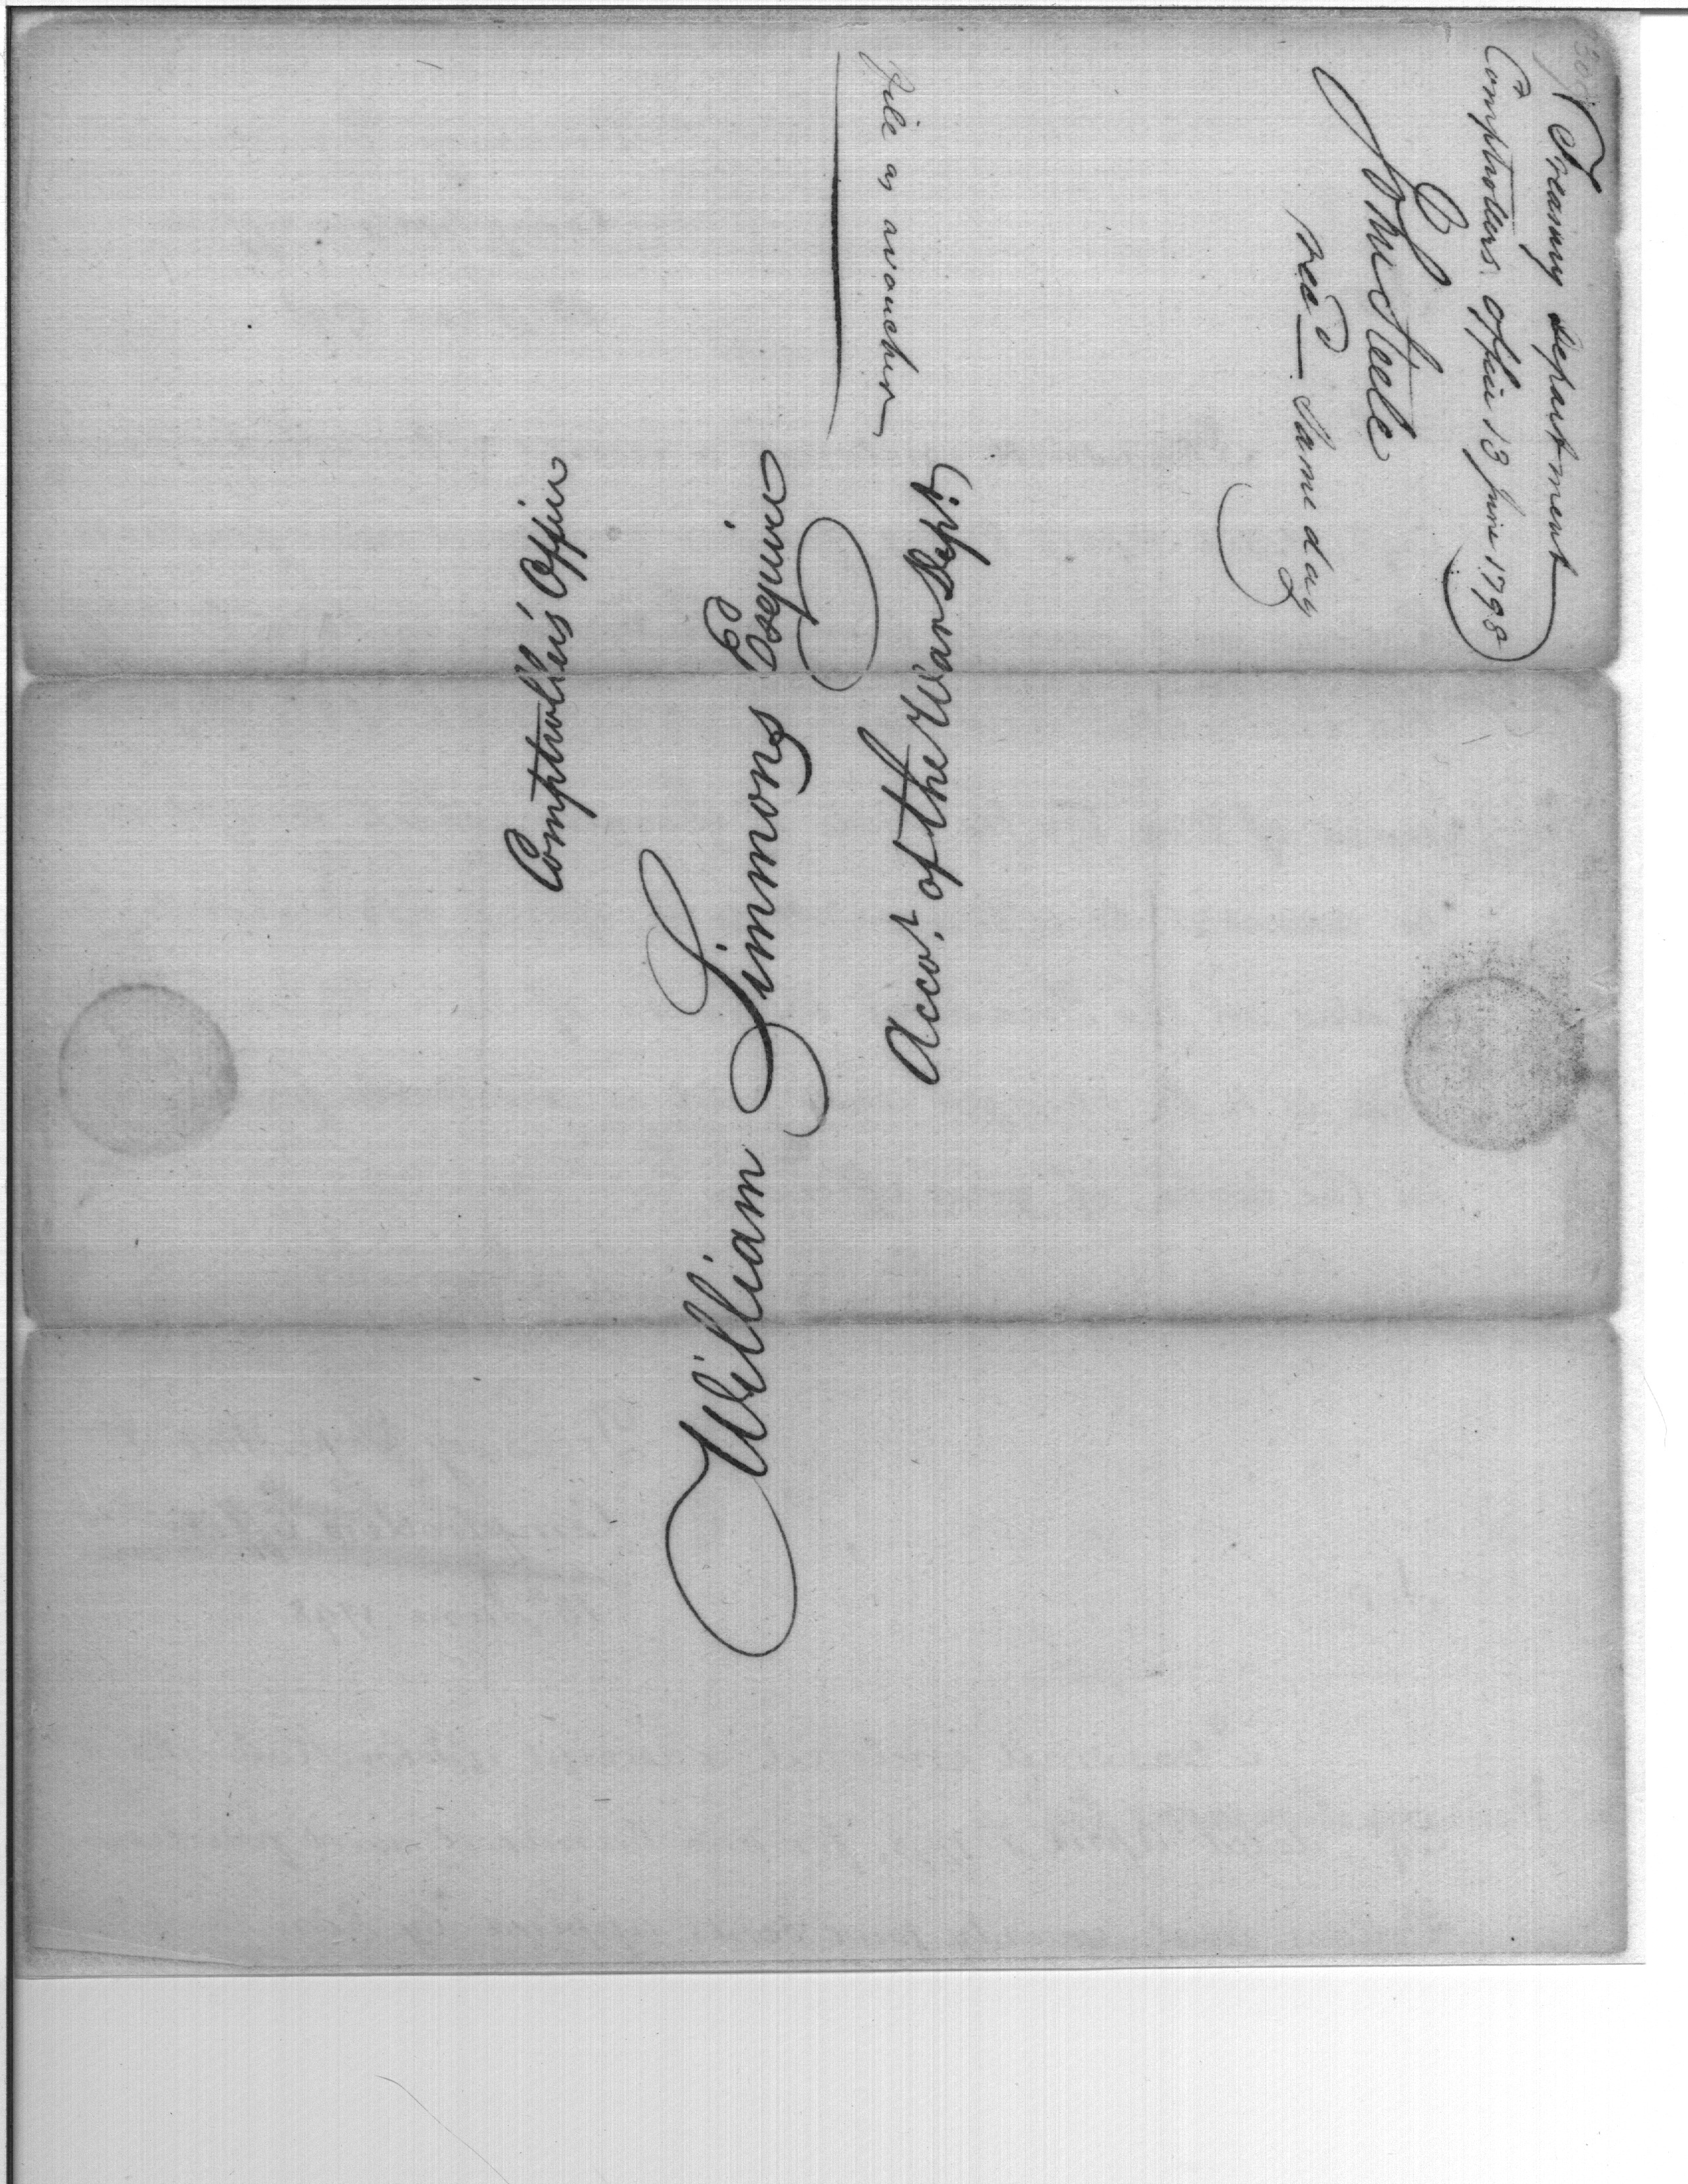 Treasury department
Comptrollers office 13 June 1798
John Steele
recd same day
file as avoucher
Comptroller's Office
William Simmons Esquire
Accot. of the War Dept.